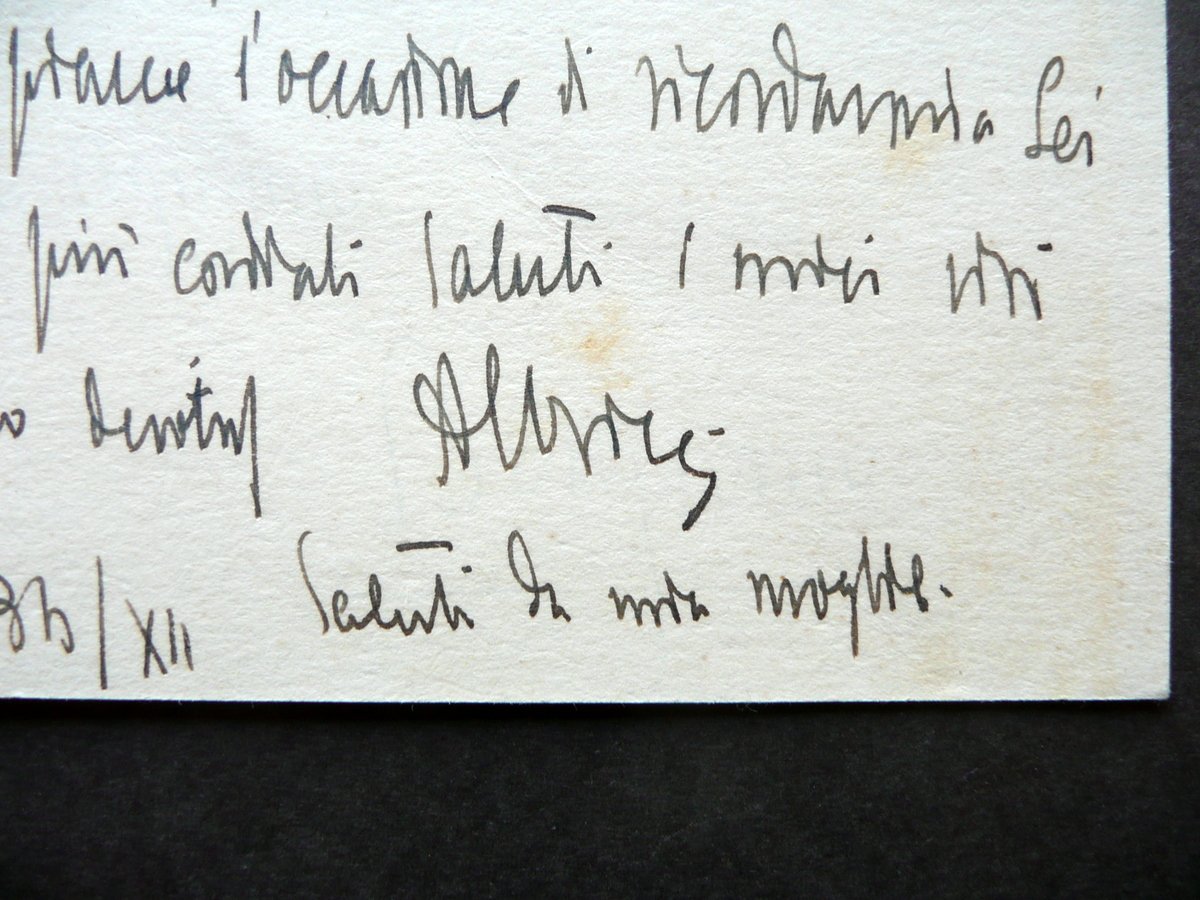 piacere l'occasione di ricordarmi a Lei
più cordiali saluti i miei più
devotmo
/XII Saluti da mia moglie.